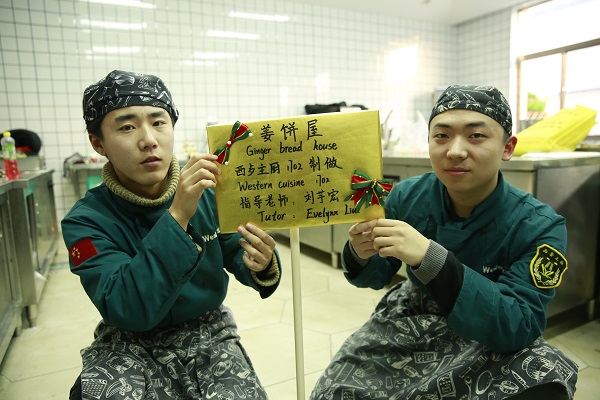 姜饼屋
Ginger bread house
西点主厨 1702 制做
Western cuisine 1702
指导老师：刘芋宏
Tutor: Evelynn Liu